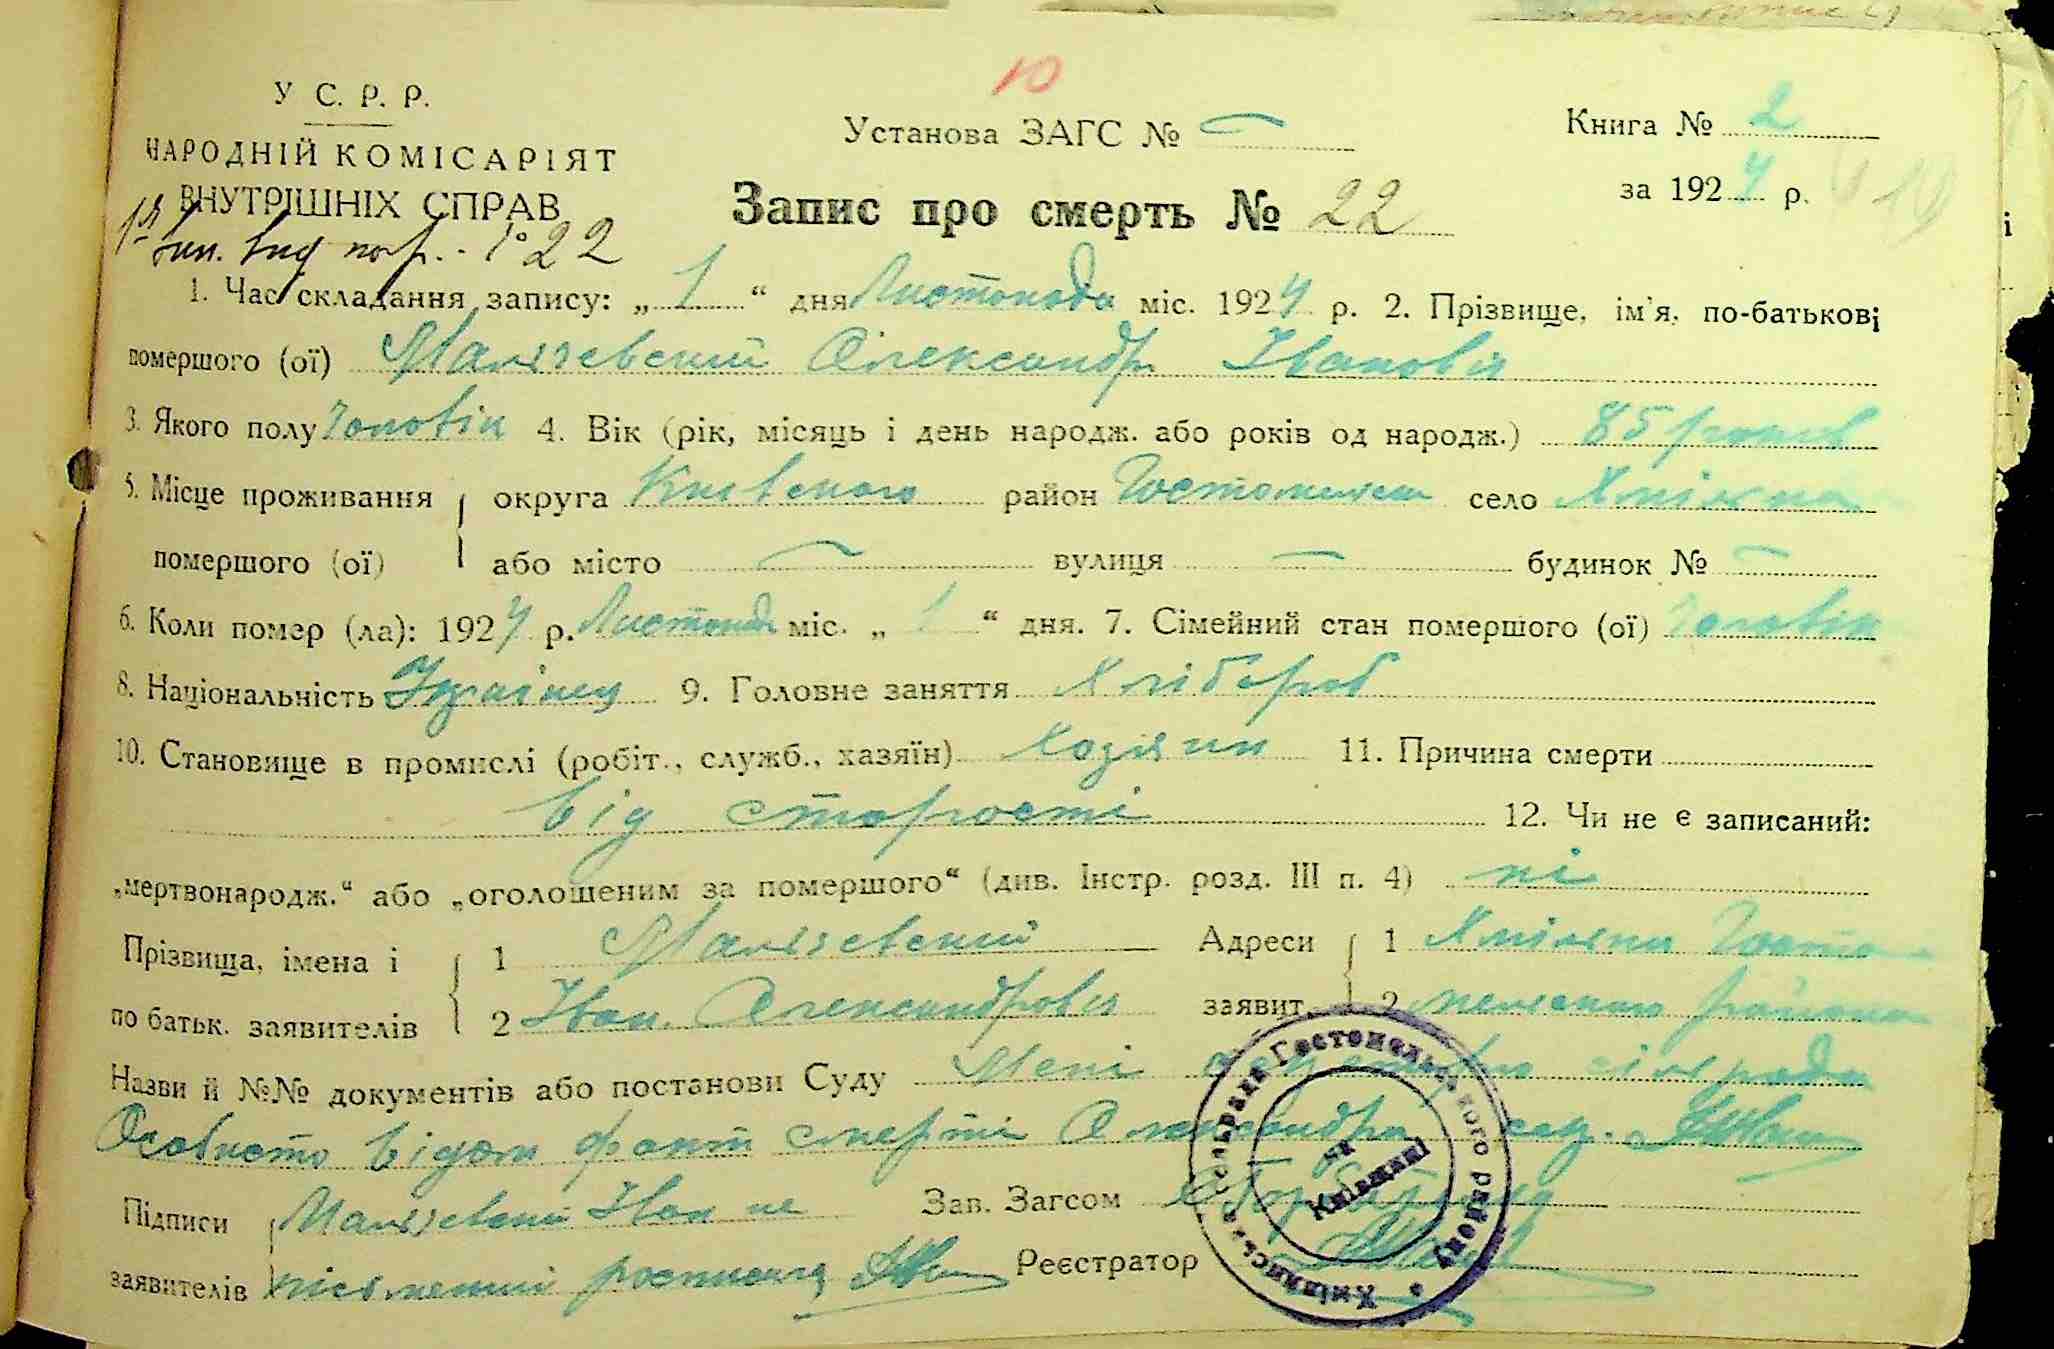 10
У С. Р. Р.
НАРОДНІЙ КОМІСАРІЯТ
ВНУТРІШНІХ СПРАВ
22
Установа ЗАГС № —
Книга № 2
за 1924 р.
Запис про смерть № 22
1. Час складання запису: „ 1 “ дня Листопада міс. 1924 р. 2. Прізвище, ім'я, по-батькові
помершого (ої) Олександр Іванович
3. Якого полу Чоловік 4. Вік (рік, місяць і день народж. або років од народж.) 85 років
5. Місце проживання округа Київського район Гостомельськ село
помершого (ої) або місто — вулиця — будинок № —
6. Коли помер (ла): 1924 р. Листопада міс. „ 1 “ дня. 7. Сімейний стан помершого (ої) Чоловік
8. Національність Українец 9. Головне заняття Хлібороб
10. Становище в промислі (робіт., служб., хазяїн) Хозяин 11. Причина смерти
від старости
12. Чи не є записаний:
„мертвонародж.“ або „оголошеним за помершого“ (див. Інстр. розд. III п. 4) ні
Прізвища, імена і 1 Адреси 1
по батьк. заявителів 2 Іван Олександрович заявит. 2 району
Назви й №№ документів або постанови Суду Мені сільради
Особисто відом факт смерти Олександра
Підписи Іван не Зав. Загсом
заявителів письменний Реєстратор
сільрада Гостомельського району
на Київщині